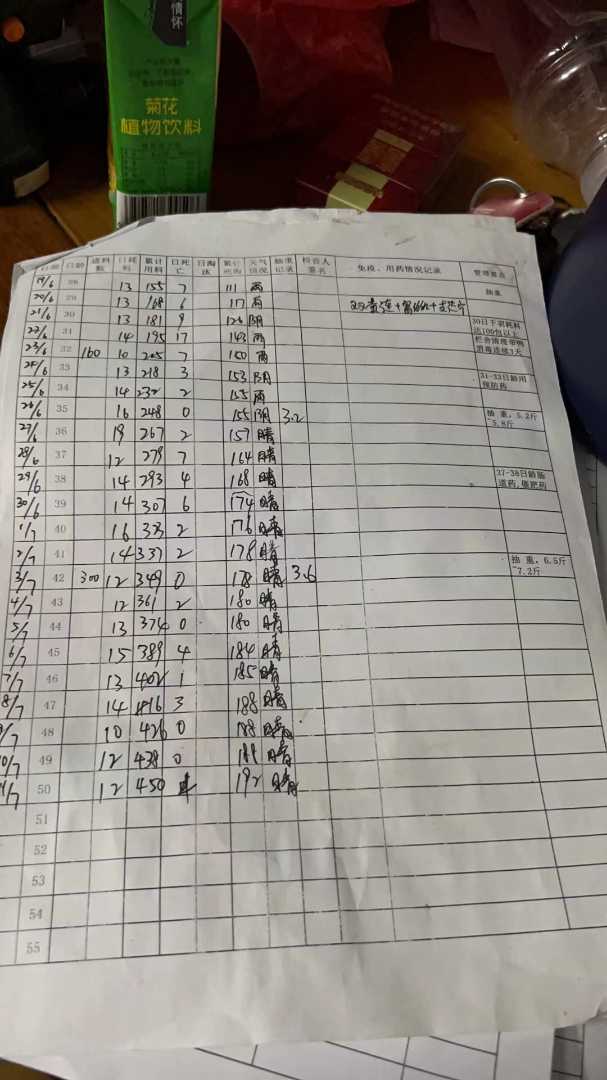 情怀
菊花
植物饮料
日期 日龄 进料数 日耗料 累计用料 日死亡 日淘汰 累计死淘 天气情况 抽重记录 检查人签名 免疫、用药情况记录 管理重点
19/6 28 13 155 7 111 雨 抽重
20/6 29 13 168 6 117 雨
21/6 30 13 181 9 126 阴 双黄连+
22/6 31 14 195 17 143 雨 30日干前耗料达100包以上
23/6 32 160 10 205 7 150 雨 栏舍清理带鸭消毒连续3天
24/6 33 13 218 3 153 阴
25/6 34 14 232 2 155 雨 31-33日龄用预防药
26/6 35 16 248 0 155 阴 3.2 抽重，5.2斤-5.8斤
27/6 36 19 267 2 157 晴
28/6 37 12 279 7 164 晴
29/6 38 14 293 4 168 晴 37-38日龄肠道药、催肥药
30/6 39 14 307 6 174 晴
1/7 40 16 323 2 176 晴
2/7 41 14 337 2 178 晴
3/7 42 300 12 349 0 178 晴 3.6 抽重，6.5斤-7.2斤
4/7 43 12 361 2 180 晴
5/7 44 13 374 0 180 晴
6/7 45 15 389 4 184 晴
7/7 46 13 402 1 185 晴
8/7 47 14 416 3 188 晴
9/7 48 10 426 0 188 晴
10/7 49 12 438 0 188 晴
11/7 50 12 450 4 192 晴
51
52
53
54
55